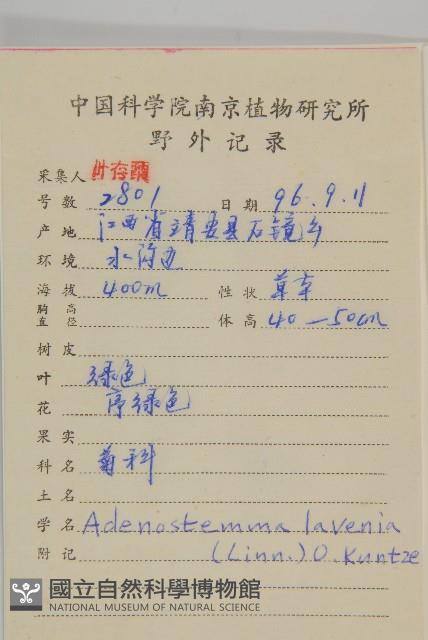 中国科学院南京植物研究所
野外记录
采集人 叶存粟
号数 2801 日期 96.9.11
产地 江西省靖安县石镜乡
环境 水沟边
海拔 400m 性状 草本
胸高直径 体高 40—50cm
树皮
叶 绿色
花 序绿色
果实
科名 菊科
土名
学名 Adenostemma lavenia
附记 (Linn.) O. Kuntze
國立自然科學博物館
NATIONAL MUSEUM OF NATURAL SCIENCE